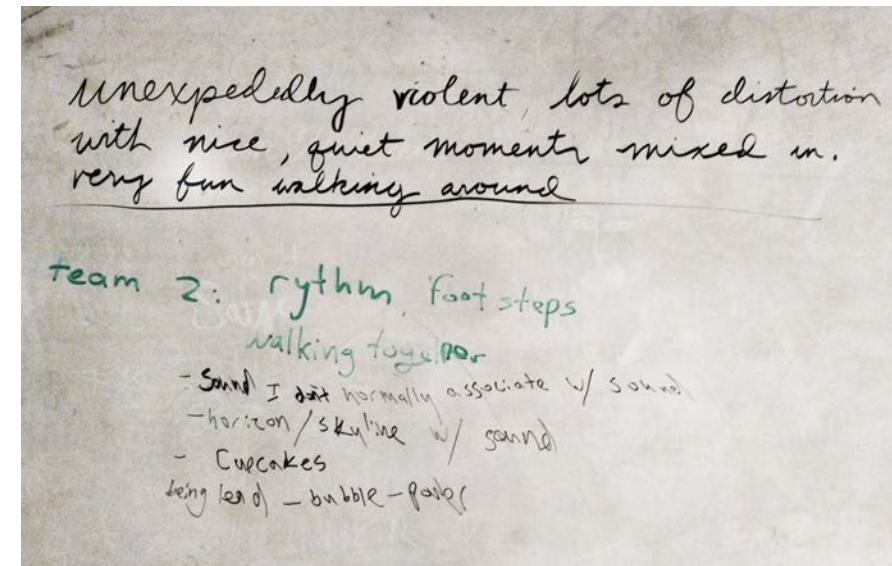 unexpectedly violent, lots of distortion
with nice, quiet moments mixed in.
very fun walking around
team 2: rythm, foot steps
walking together
- Sound I don't normally associate w/ sound
- horizon / skyline w/ sound
- Cupcakes
being lead - bubble -